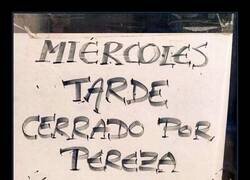 MIÉRCOLES
TARDE
CERRADO POR
PEREZA